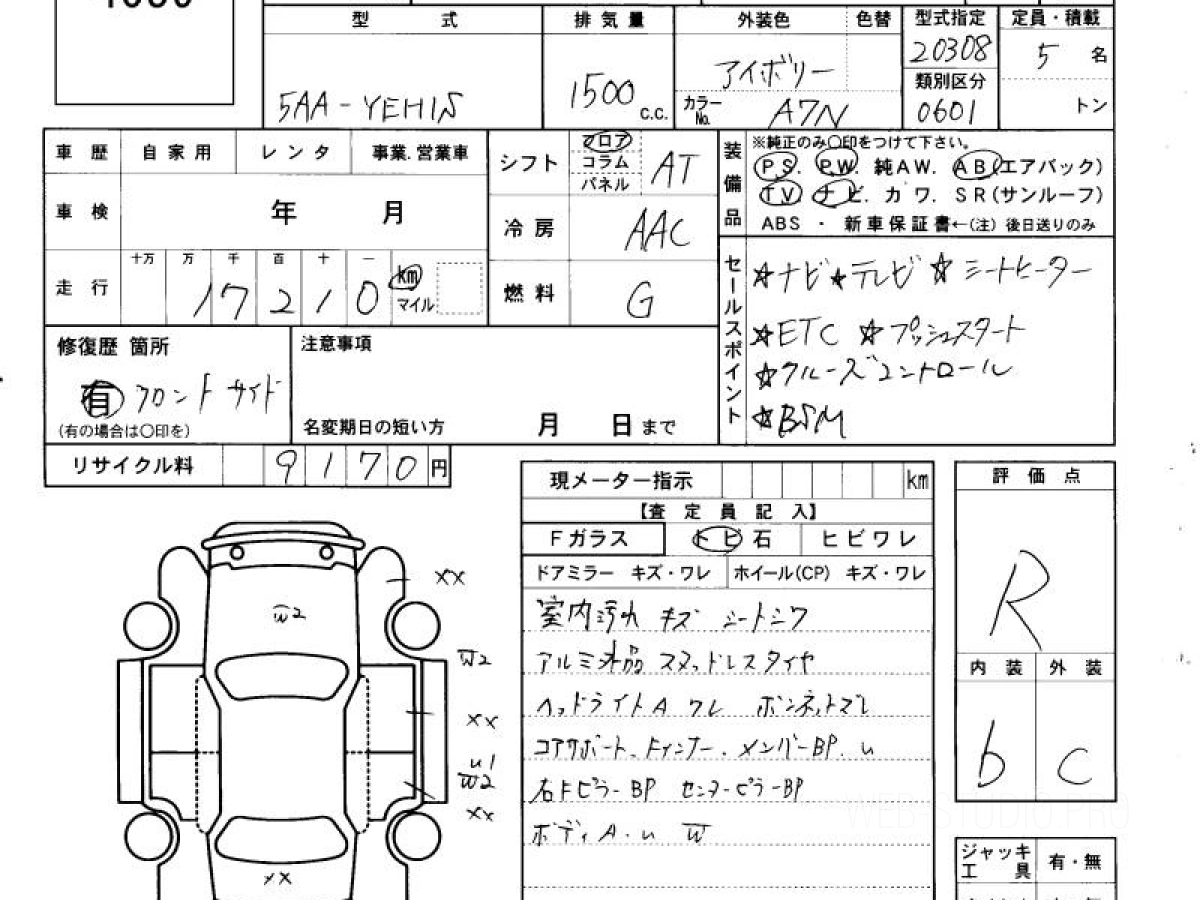 型 式 排 気 量 外装色 色替 型式指定 定員・積載
5AA-YEH15 1500 c.c. アイボリー 20308 5 名
カラーNo. A7N 類別区分 0601 トン
車 歴 自 家 用 レ ン タ 事業.営業車
車 検 年 月
走 行 十万 万 千 百 十 一
1 7 2 1 0 km マイル
シフト フロア コラム パネル AT
冷 房 AAC
燃 料 G
装備品 ※純正のみ○印をつけて下さい。
PS. PW. 純AW. AB(エアバック)
TV ナビ. カ ワ. SR(サンルーフ)
ABS ・ 新車保証書←(注) 後日送りのみ
セールスポイント
☆ナビ★テレビ☆シートヒーター
☆ETC ☆プッシュスタート
☆クルーズコントロール
☆BSM
修復歴 箇所
有 フロント サイド
(有の場合は○印を)
注意事項
名変期日の短い方 月 日 まで
リサイクル料 9 1 7 0 円
現メーター指示 km
【査 定 員 記 入】
Fガラス トビ石 ヒビワレ
ドアミラー キズ・ワレ ホイール(CP) キズ・ワレ
室内汚れ キズ シートシワ
アルミ外品 スタッドレスタイヤ
ヘッドライトA ワレ ボンネットズレ
コアサポート、Fインナー、メンバーBP.u
右Fピラー BP センターピラーBP
ボディA.u W
評 価 点
R
内 装 外 装
b C
ジャッキ 工 具 有・無
XX
W2
W2
XX
u1
W2
XX
XX
WEB-STUDIO.PRO